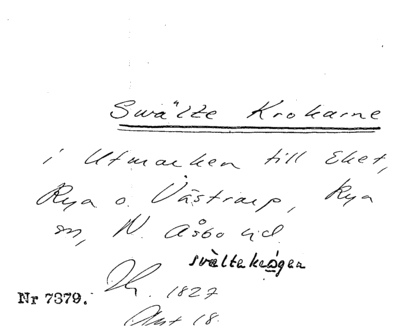 Swälte Krokarne
i Utmarken till Eket,
Rya o. Västrarp, Rya
sn, N. Åsbo hd.
svältekrogen
1827
Nr 7379.
Akt 18.